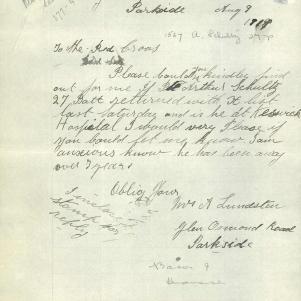 Parkside Aug 9
1918
1567 A. Schultz 27
To the Red Cross
Please could you kindly find
out for me if Pte Arthur Schultz
27 Batt returned with X list
last Saturday and is he at Keswick
Hospital I would very please if
you could let me know I am
anxious know he has been away
over 3 years
Oblige Yours
Mrs A Lundsten
Glen Osmond Road
Parkside
I enclosed
stamp for
reply